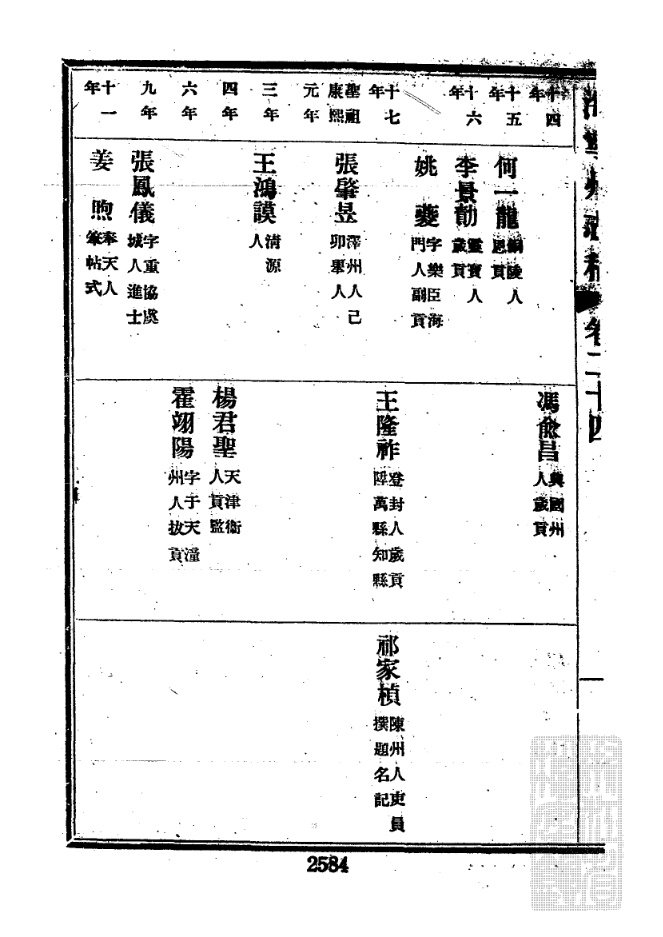 卷二十四
十四年
十五年
十六年
十七年
聖祖康熙元年
三年
四年
六年
九年
十一年
何一龍 銅陵人恩貢
李景勛 靈寶人歲貢
姚夔 字樂臣海門人副貢
張肇昱 澤州人己卯舉人
王鴻謨 清源人
張鳳儀 字重協虞城人進士
姜煦 奉天人筆帖式
馮兪昌 興國州人歲貢
王隆祚 登封人歲貢陞萬縣知縣
楊君聖 天津衛人貢監
霍翊陽 字于天潼州人拔貢
祁家楨 陳州人吏員撰題名記
2584